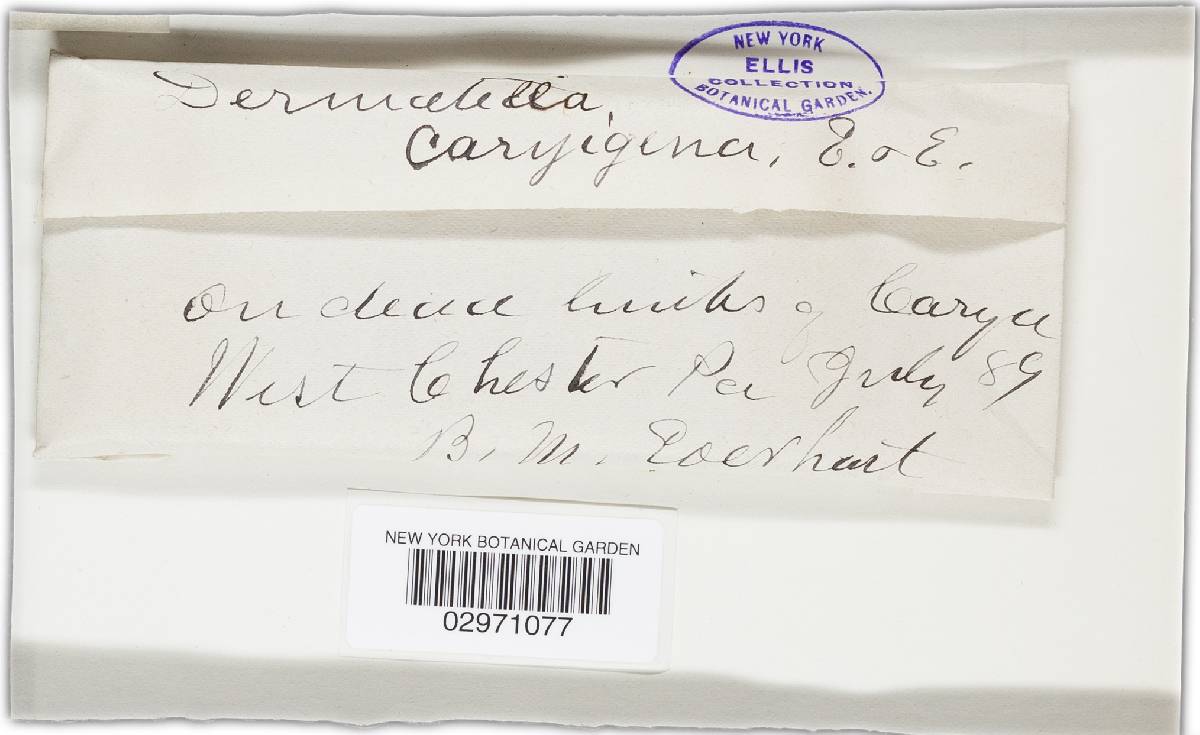 NEW YORK
ELLIS
COLLECTION
BOTANICAL GARDEN.
Dermatella
caryigena, E. & E.
On dead limbs of Carya
West Chester Pa July 89
B. M. Everhart
NEW YORK BOTANICAL GARDEN
02971077